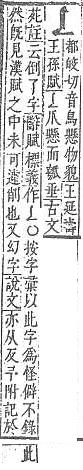 𠄏
都皎切音鳥懸物貌王延壽
王孫賦𠄏瓜懸而瓠垂古文
苑註云倒了字辭賦標義作𠄏○按字彙以此字為怪僻不錄
然旣見漢賦之中未可遽削也又幻字說文亦从反予附記於
此